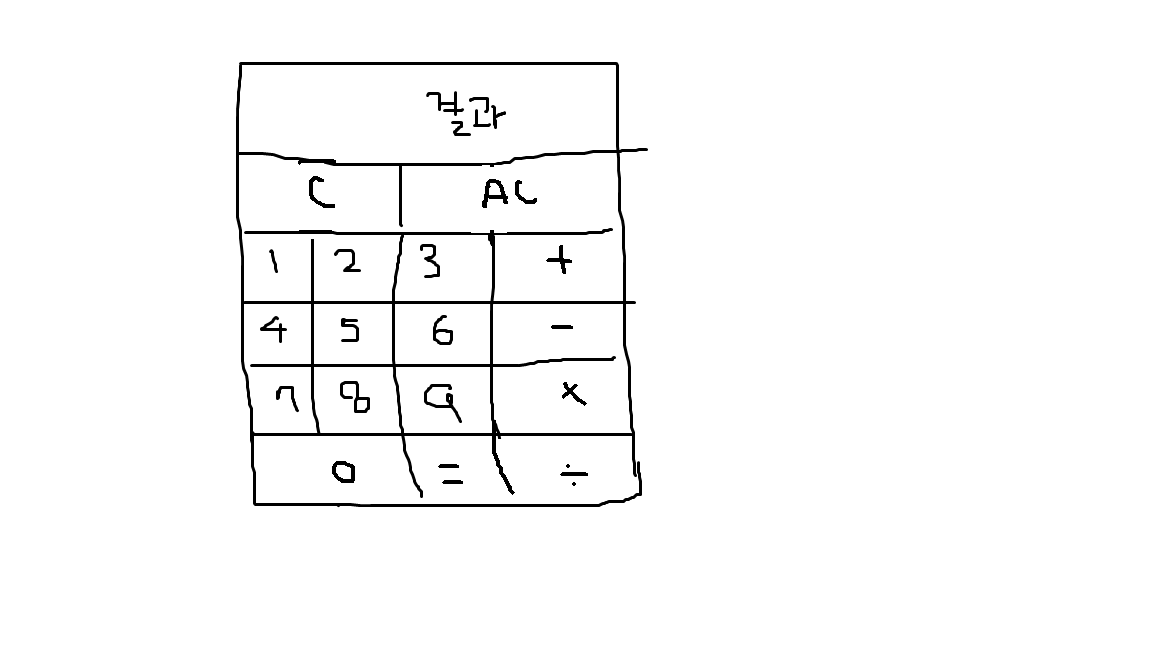 결과
C AC
1 2 3 +
4 5 6 -
7 8 9 ×
0 = ÷